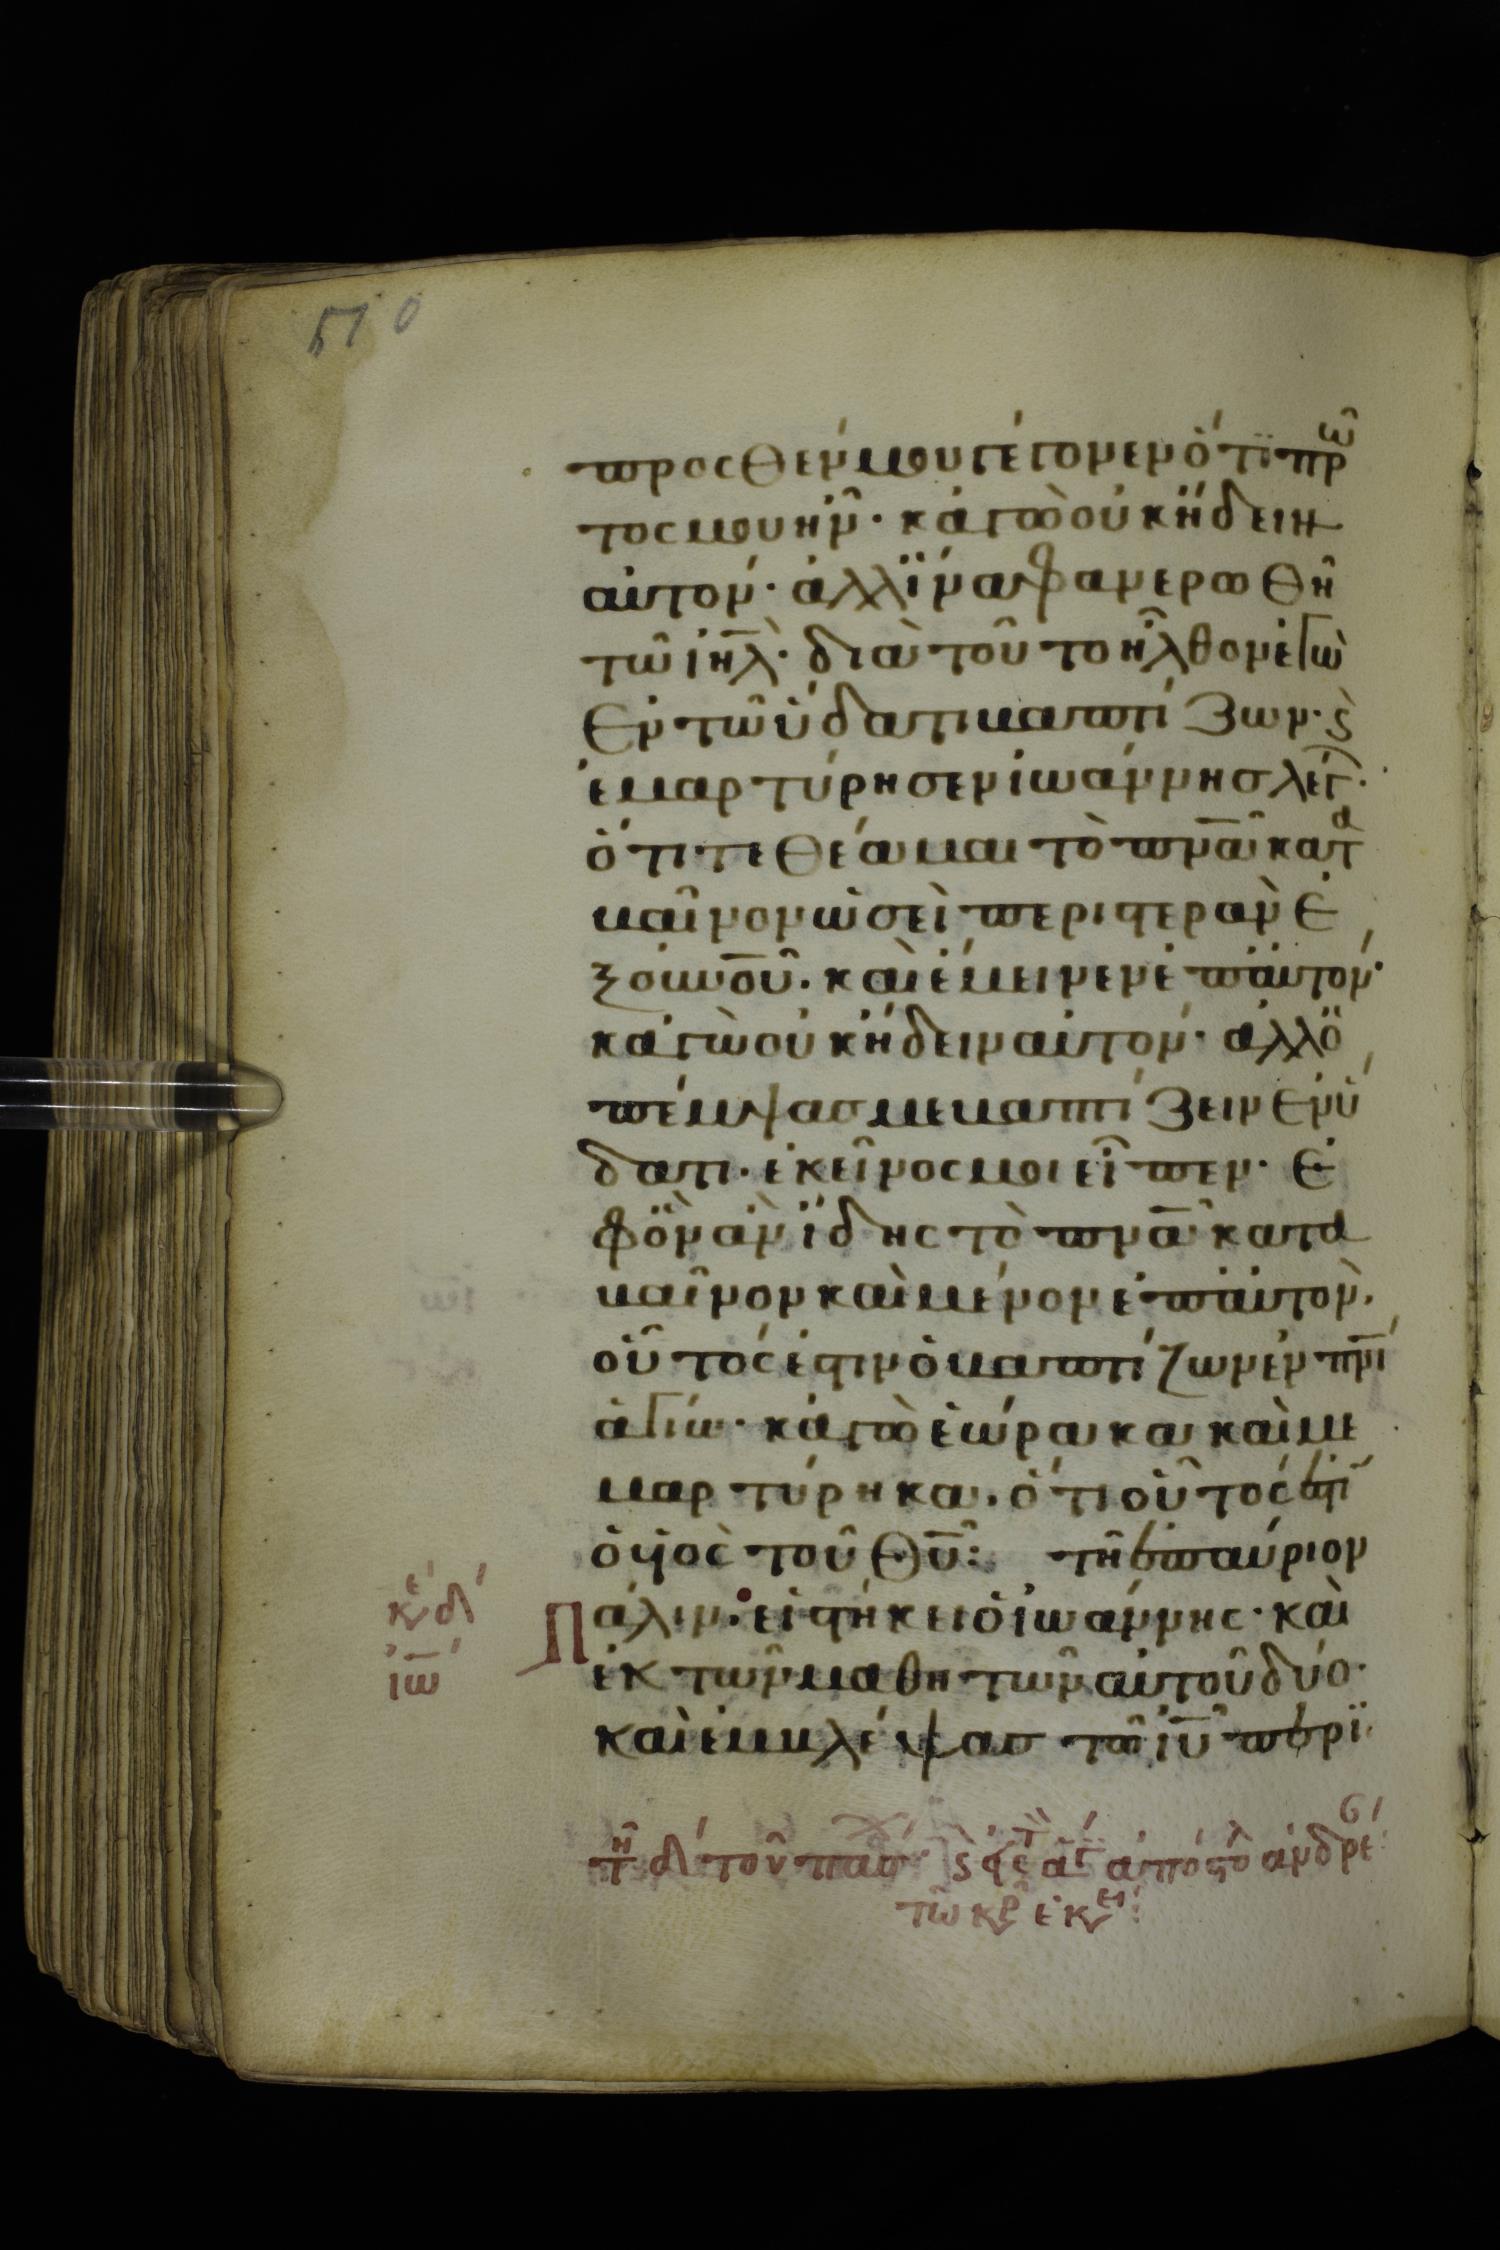 510
προσθέν μου γέγονεν ὅτι πρῶ
τος μου ἦν· κἀγὼ οὐκ ἤδειν
αὐτόν· ἀλλ ἵνα φανερωθῆ
τῶ ἰη̅λ· διὰ τοῦτο ἦλθον ἐγὼ
ἐν τῶ ὕδατι βαπτίζων· ϛ̀
ἐμαρτύρησεν ἰωάννησ λέγ·
ὅτι τεθέαμαι τὸ πν̅α κατα
βαῖνον ὡσεὶ περιστερὰν ἐ
ξ οὐνο̅ῦ· καὶ ἔμεινεν ἐπ αὐτόν·
κἀγὼ οὐκ ἤδειν αὐτόν· ἀλλ ὁ
πέμψασ με βαπτίζειν ἐν ὕ
δατι· ἐκεῖνος μοι εἶπεν· ἐ
φ ὃν ἂν ἴδης τὸ πν̅α κατα
βαῖνον καὶ μένον ἐπ αὐτὸν,
οὗτός ἐστιν ὁ βαπτίζων ἐν πν̅ι
ἁγίω· κἀγὼ ἑώρακα καὶ με
μαρτύρηκα· ὅτι οὗτός ἐστι
ὁ υἱὸς τοῦ θ̅υ: τῆ ἐπαύριον
κε ̅ δ
ἰ̅ω
Πάλιν· εἱστήκει ὁ ἰωάννης· καὶ
ἐκ τῶν μαθητῶν αὐτοῦ δύο·
καὶ ἐμβλέψασ τῶ ἰ̅υ περι
τῆ δ τοῦ πάσ ϛ̀ εἰς τ ἁγ ἀπόστολ ἀνδρέ
τῶ κρ ἐκει: